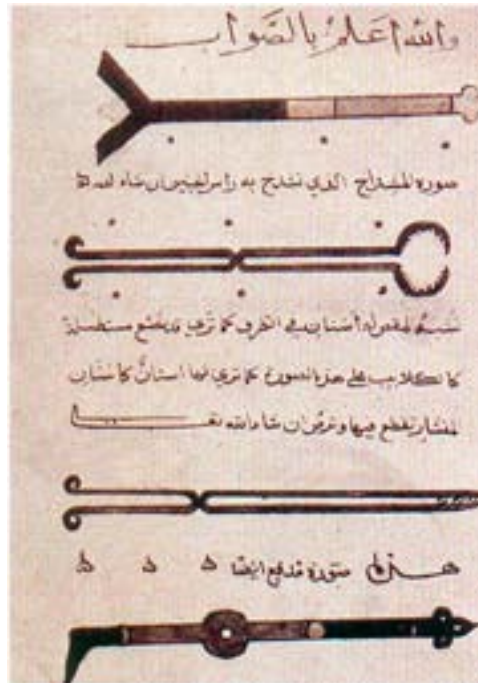 والله اعلم بالصواب
صورة المشداخ الذي تشدخ به راس الجنين ان شاء الله ه
شبه المقص له اسنان في الطرف كما ترى وقد يصنع مستطيلا
كالكلاليب على هذه الصورة كما ترى لها اسنان كاسنان
المنشار يقطع بها وترض ان شاء الله
هذه صورة مدفع ايضا ه ه ه